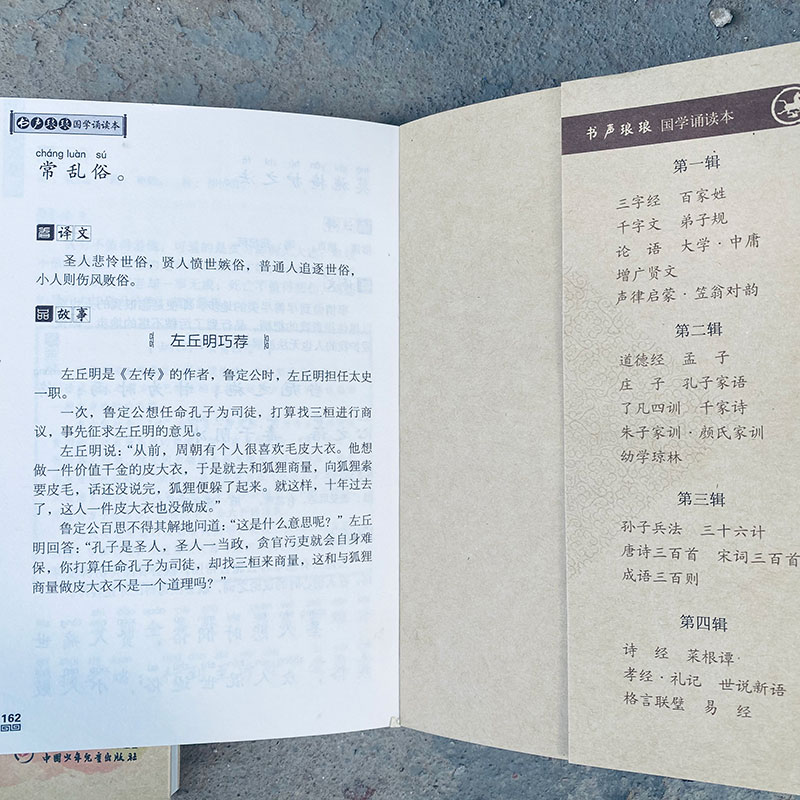 书声琅琅国学诵读本
cháng luàn sú
常乱俗。
译文
圣人悲怜世俗，贤人愤世嫉俗，普通人追逐世俗，
小人则伤风败俗。
故事
左丘明巧荐
左丘明是《左传》的作者，鲁定公时，左丘明担任太史
一职。
一次，鲁定公想任命孔子为司徒，打算找三桓进行商
议，事先征求左丘明的意见。
左丘明说：“从前，周朝有个人很喜欢毛皮大衣。他想
做一件价值千金的皮大衣，于是就去和狐狸商量，向狐狸索
要皮毛，话还没说完，狐狸便躲了起来。就这样，十年过去
了，这人一件皮大衣也没做成。”
鲁定公百思不得其解地问道：“这是什么意思呢？”左丘
明回答：“孔子是圣人，圣人一当政，贪官污吏就会自身难
保，你打算任命孔子为司徒，却找三桓来商量，这和与狐狸
商量做皮大衣不是一个道理吗？”
162
中国少年儿童出版社
书声琅琅 国学诵读本
第一辑
三字经 百家姓
千字文 弟子规
论语 大学·中庸
增广贤文
声律启蒙·笠翁对韵
第二辑
道德经 孟子
庄子 孔子家语
了凡四训 千家诗
朱子家训·颜氏家训
幼学琼林
第三辑
孙子兵法 三十六计
唐诗三百首 宋词三百首
成语三百则
第四辑
诗经 菜根谭
孝经·礼记 世说新语
格言联璧 易经